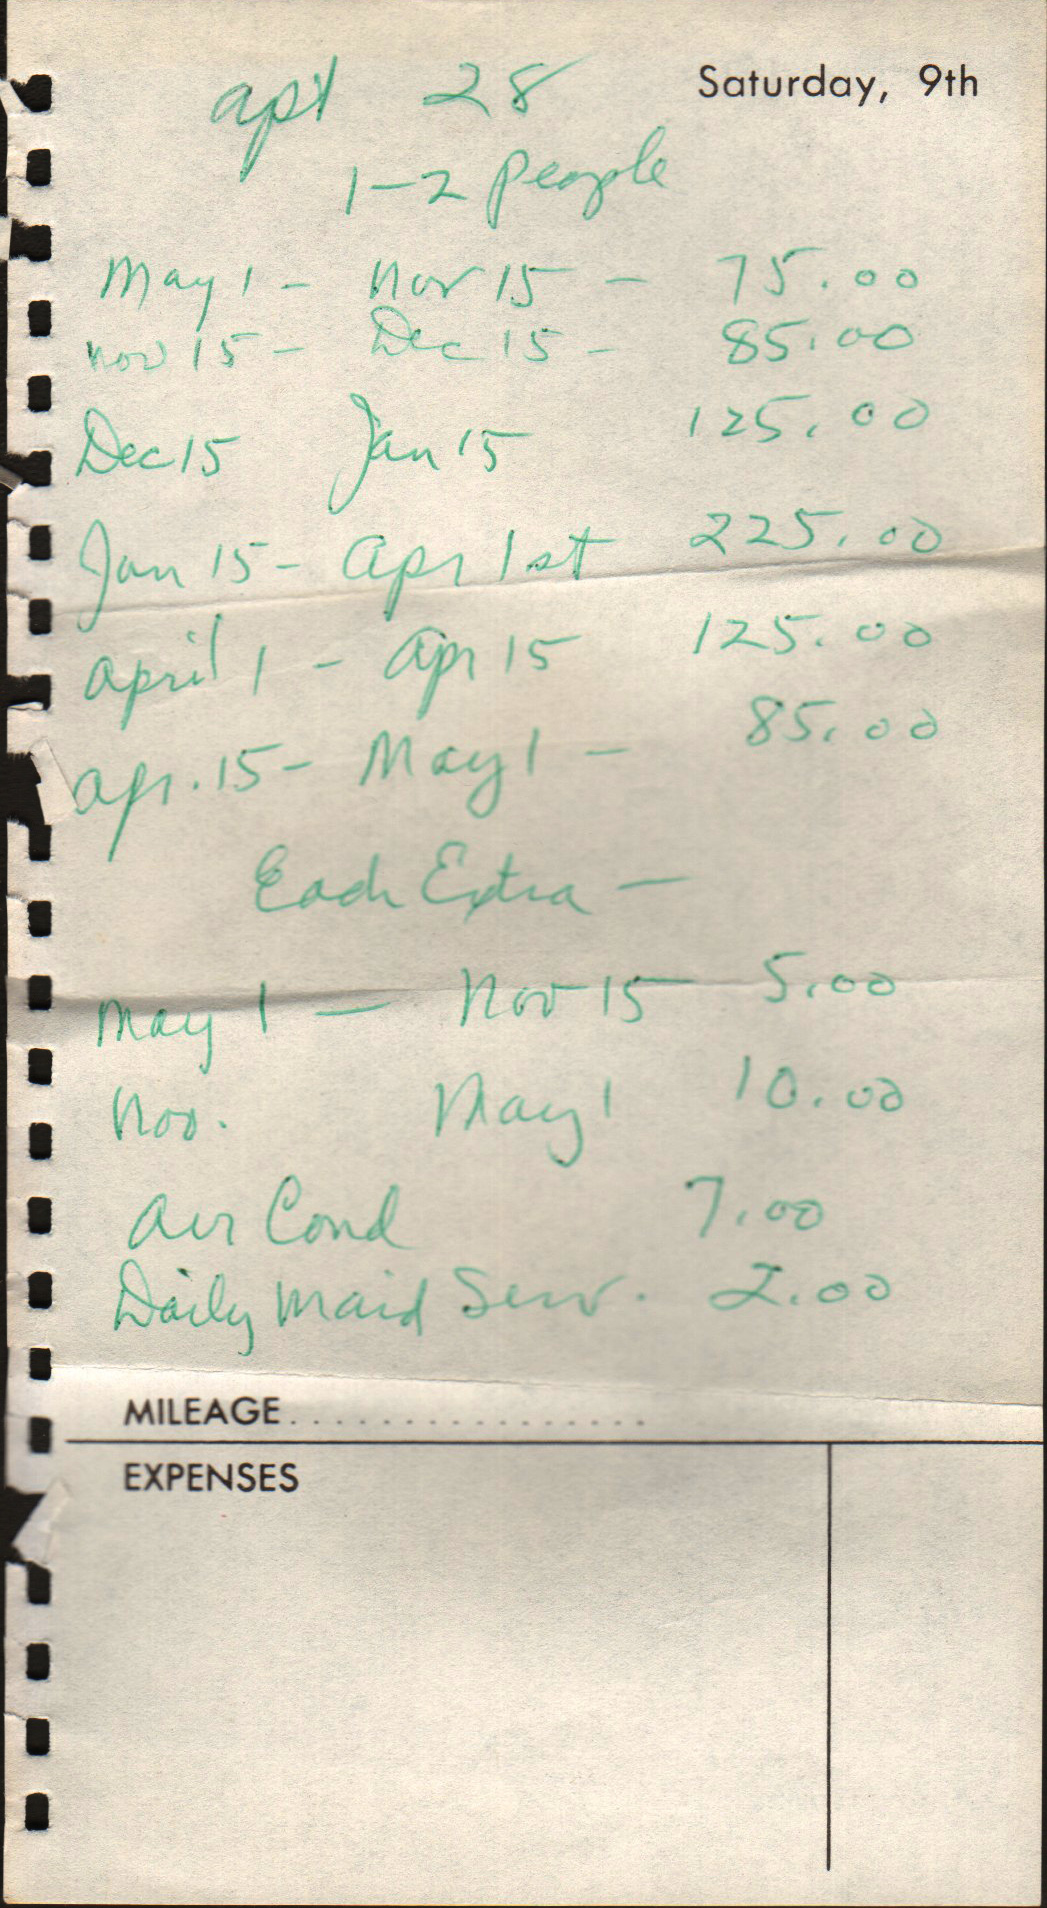 apt 28 Saturday, 9th
1-2 People
May 1 - Nov 15 - 75.00
Nov 15 - Dec 15 - 85.00
Dec 15 Jan 15 125.00
Jan 15 - Apr 1st 225.00
April 1 - Apr 15 125.00
Apr. 15 - May 1 - 85.00
Each Extra -
May 1 - Nov 15 5.00
Nov. May 1 10.00
Air Cond 7.00
Daily Maid Serv. 2.00
MILEAGE.................
EXPENSES